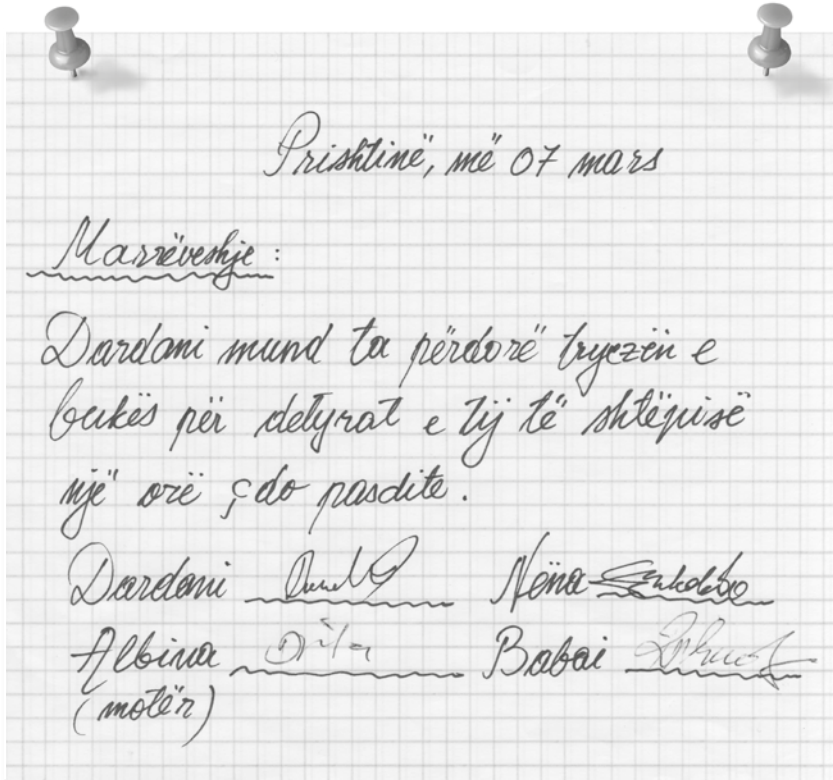 Prishtinë, më 07 mars
Marrëveshje:
Dardani mund ta përdorë tryezën e
bukës për detyrat e tij të shtëpisë
një orë çdo pasdite.
Dardani Nëna
Albina Babai
(motër)